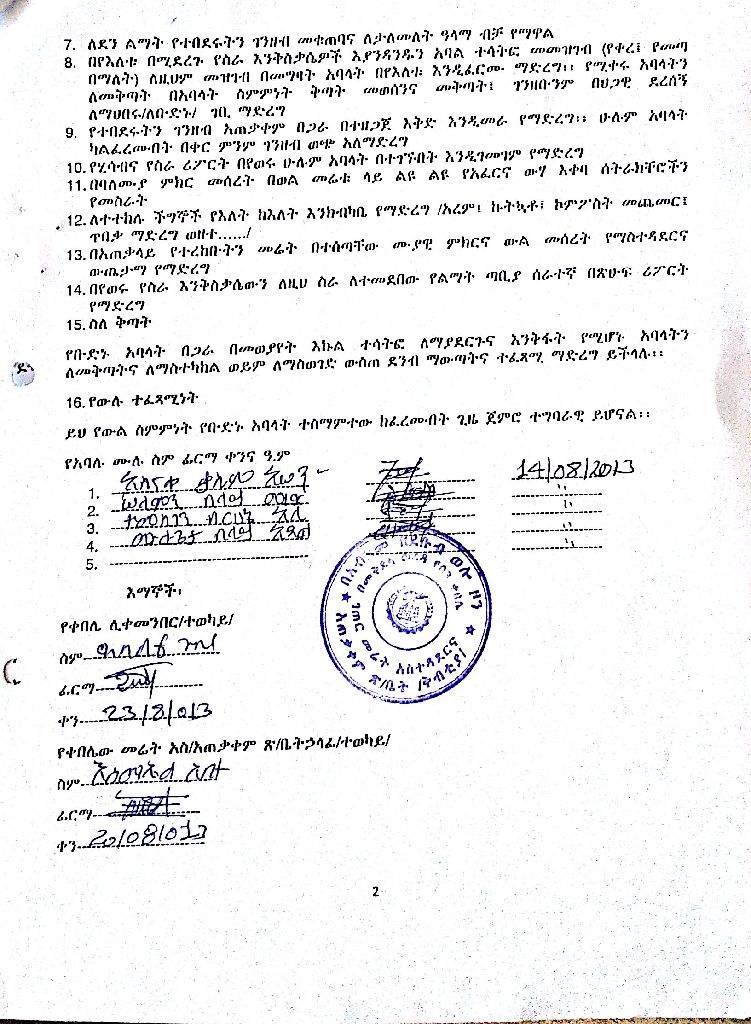 7. ለደን ልማት የተበደሩትን ገንዘብ መቁጠባና ለታለመለት ዓላማ ብቻ የማዋል
8. በየእለቱ በሚደረጉ የስራ እንቅስቃሴዎች እያንዳንዱን አባል ተሳትፎ መመዝገብ (የቀረ፤ የመጣ
በማለት) ለዚህም መዝገብ በመግባት አባላት በየእለቱ እንዲፈርሙ ማድረግ፡፡ የሚቀሩ አባላትን
ለመቅጣት በአባላት ስምምነት ቅጣት መወሰንና መቅጣት፤ ገንዘቡንም በህጋዊ ደረሰኝ
ለማህበሩ/ለቡድኑ/ ገቢ ማድረግ
9. የተበደሩትን ገንዘብ አጠቃቀም በጋራ በተዘጋጀ እቅድ እንዲመራ የማድረግ፡፡ ሁሉም አባላት
ካልፈረሙበት በቀር ምንም ገንዘብ ወጭ አለማድረግ
10. የሂሳብና የስራ ሪፖርት በየወሩ ሁሉም አባላት በተገኙበት እንዲገመገም የማድረግ
11. በባለሙያ ምክር መሰረት በወል መሬቱ ላይ ልዩ ልዩ የአፈርና ውሃ እቀባ ስትራክቸሮችን
የመስራት
12. ለተተከሉ ችግኞች የእለት ከእለት እንክብካቤ የማድረግ /አረም፤ ኩትኳቶ፤ ኮምፖስት መጨመር፤
ጥበቃ ማድረግ ወዘተ....../
13. በአጠቃላይ የተረከቡትን መሬት በተሰጣቸው ሙያዊ ምክርና ውል መሰረት የማስተዳደርና
ውጤታማ የማድረግ
14. በየወሩ የስራ እንቅስቃሴውን ለዚህ ስራ ለተመደበው የልማት ጣቢያ ሰራተኛ በጽሁፍ ሪፖርት
የማድረግ
15. ስለ ቅጣት
የቡድኑ አባላት በጋራ በመወያየት እኩል ተሳትፎ ለማያደርጉና እንቅፋት የሚሆኑ አባላትን
ለመቅጣትና ለማስተካከል ወይም ለማስወገድ ውስጠ ደንብ ማውጣትና ተፈጻሚ ማድረግ ይችላሉ፡፡
16. የውሉ ተፈጻሚነት
ይህ የውል ስምምነት የቡድኑ አባላት ተስማምተው ከፈረሙበት ጊዜ ጀምሮ ተግባራዊ ይሆናል፡፡
የአባሉ ሙሉ ስም ፊርማ ቀንና ዓ.ም
1. 14/08/2013
2. "
3. "
4. "
5.
እማኞች፡
የቀበሌ ሊቀመንበር/ተወካይ/
ስም
ፊርማ
ቀን 23/8/013
የቀበሌው መሬት አስ/አጠቃቀም ጽ/ቤትኃላፊ/ተወካይ/
ስም
ፊርማ
ቀን 20/08/013
2